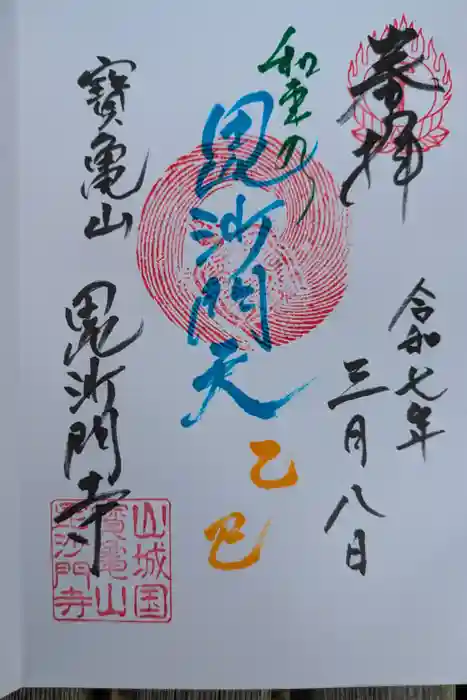 奉拝
令和七年
三月八日
和来の
毘沙門天
乙巳
寶亀山
毘沙門寺
山城国
寶亀山
毘沙門寺